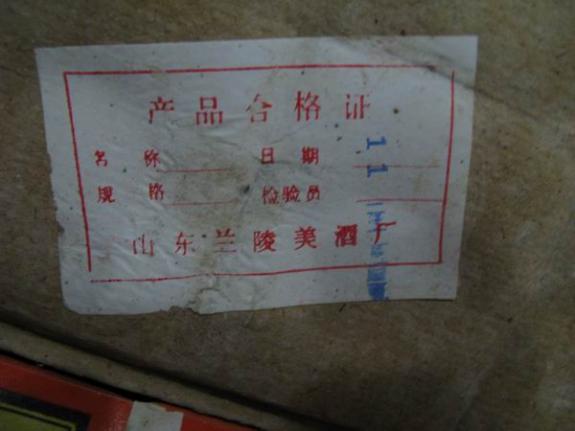 产品合格证
名称 日期
规格 检验员
山东兰陵美酒厂